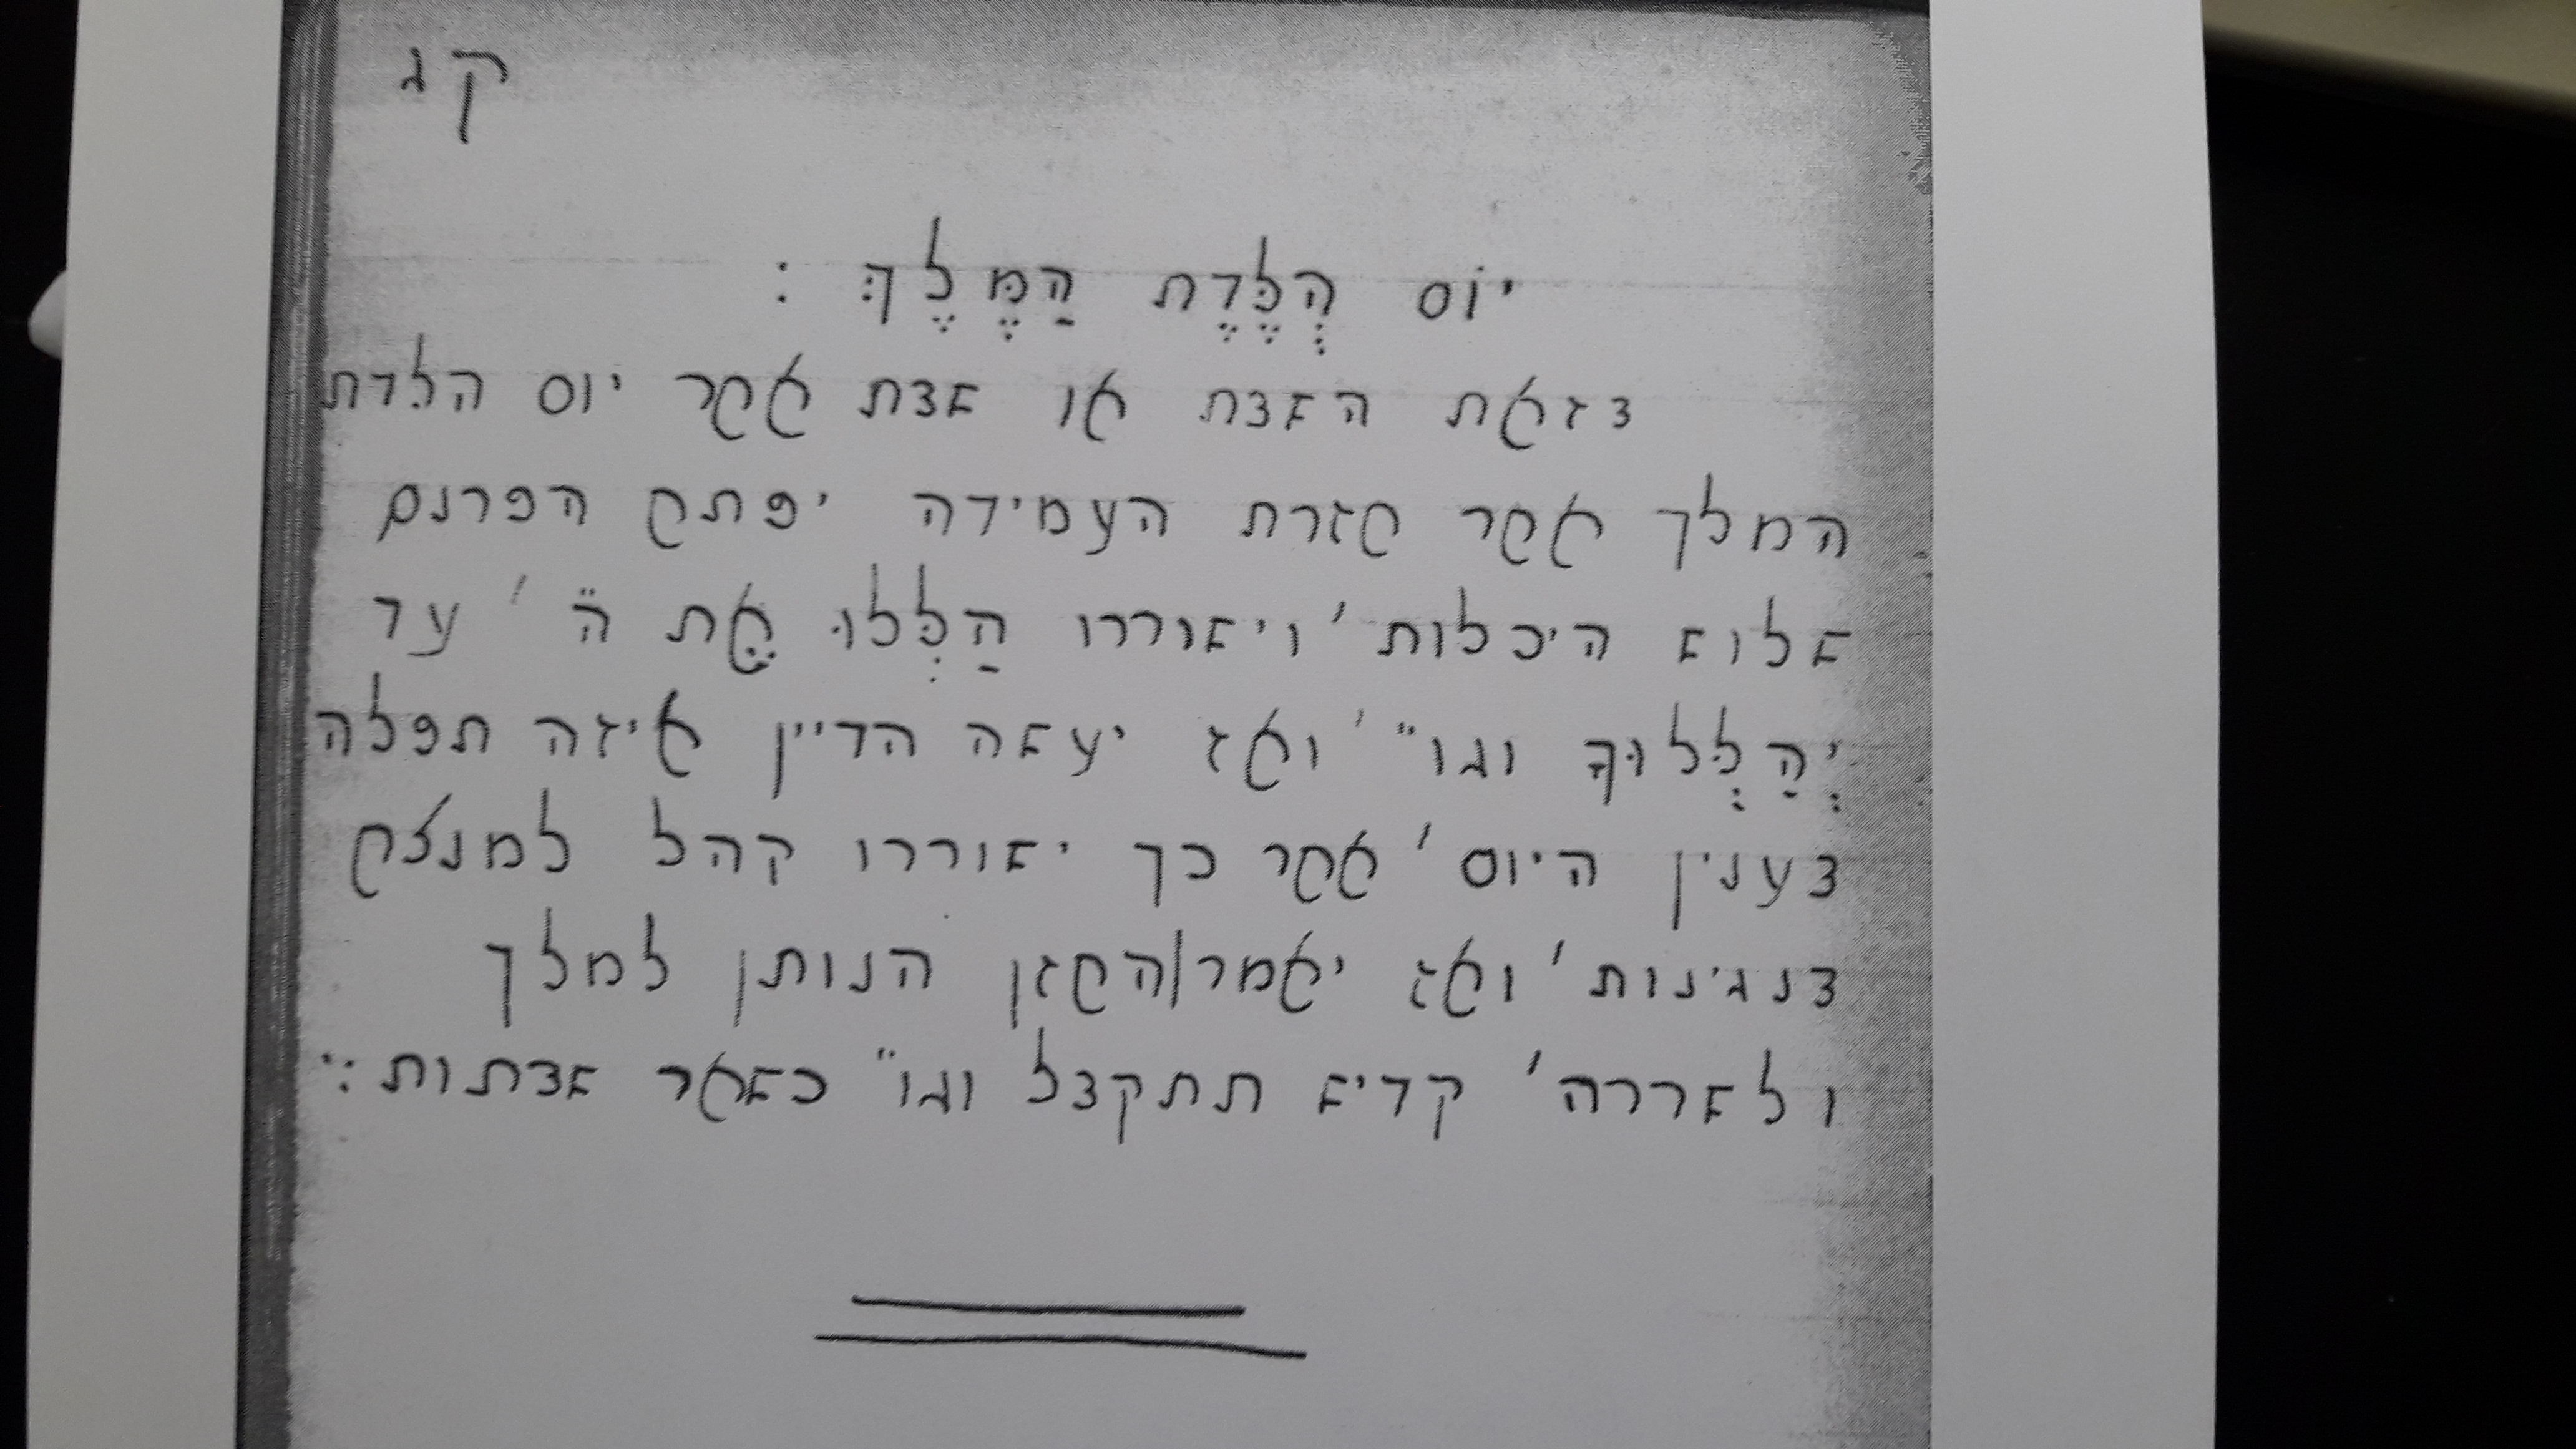 קג
יוֹם הֻלֶּדֶת הַמֶּלֶךְ :
בזאת השבת או שבת אחר יום הלדת
המלך אחר חזרת העמידה יפתח הפרנס
שלוש היכלות ׳ וישוררו הַלְּלוּ אֶת ה״ ׳ עד
יְהַלְּלוּךָ וגו״ ׳ ואז יעשה הדיין איזה תפלה
בענין היום ׳ אחר כך ישוררו קהל למנצח
בנגינות ׳ ואז יאמר|החזן הנותן למלך
ולשררה ׳ קדיש תתקבל וגו״ כשאר שבתות :